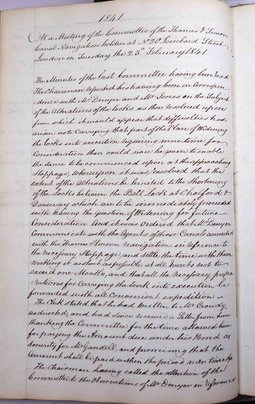 1841
At a Meeting of the Committee of the Thames & Severn
Canal Navigation holden at No 20 Lombard Street
London on Tuesday the 23rd February 1841
The Minutes of the last Committee having been read
The Chairman reported his having been in Correspon
dence with Mr Denyer and Mr Jones on the Subject
of the Alterations of the Locks as then resolved upon
from which it would appear that difficulties had
arisen as to Carrying that part of the Plan of Widening
the Locks into execution requiring more time for
Consideration than could now be given to enable
the same to be commenced upon at the approaching
Stoppage, whereupon it was resolved that the
extent of the Alterations be limited to the Shortening
of the Locks between the Bell Lock at Chalford &
Daneway which are to be immediately proceeded
with leaving the question of Widening for future
Consideration and it was Ordered that Mr Denyer
Communicate with the Agents of those Canals connected
with the Thames & Severn Navigation in reference to
the necessary Stoppage and settle the time with them
making it as short as possible at all events not to
exceed one Month, and that all the necessary prepa
rations for Carrying the work into execution be
forwarded with all convenient expedition
The Clerk stated that he had written to Mr
as directed, and had since received a Letter from him
thanking the Committee for the time allowed him
for paying the Amount due under his Bond as
Security for Mr Gardell, and promising that the
Amount shall be paid within the period mentioned
The Chairman having called the attention of the
Committee to the Observations of Mr Denyer in reference